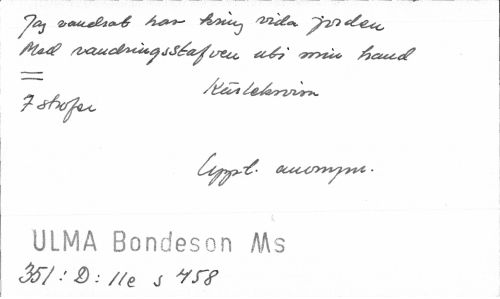 Jag vandrat har kring vida jorden
Med vandringsstafven uti min hand
=
7 strofer
Kärleksvisa
Uppt. anonym.
ULMA Bondeson Ms
351:D:11e s 458